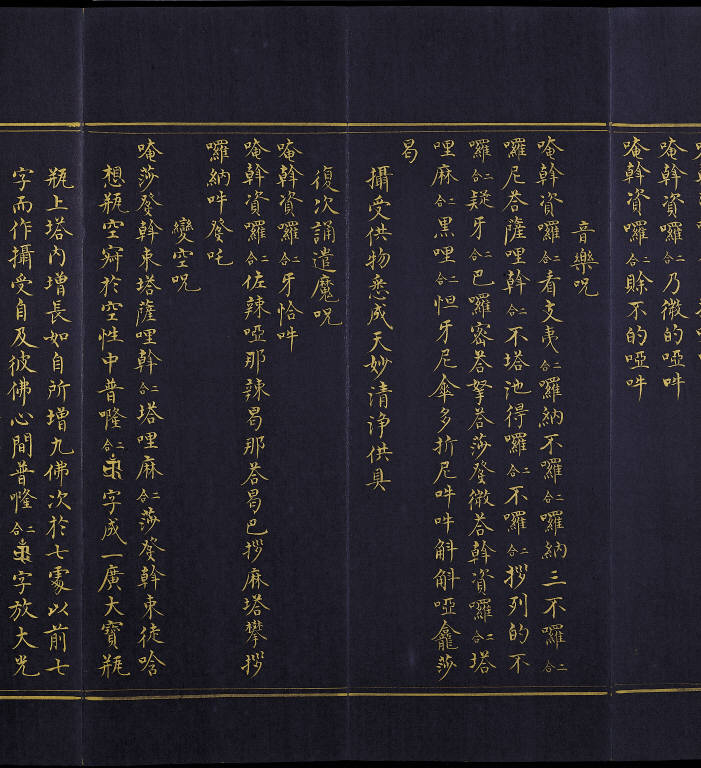 唵斡資囉二合乃微的啞吽
唵斡資囉二合賒不的啞吽
音樂咒
唵斡資囉二合看支夷二合囉納不囉二合囉納三不囉二合
囉尼荅薩哩斡二合不塔池得囉二合不囉二合拶列的不
囉二合疑牙二合巴囉密荅拏荅莎發微荅斡資囉二合塔
哩麻二合黑哩二合怛牙尼傘多折尼吽吽斛斛啞龕莎
曷
攝受供物悉成天妙清淨供具
復次誦遣魔咒
唵斡資囉二合牙恰吽
唵斡資囉二合佐辣啞那辣曷那荅曷巴拶麻塔攀拶
囉納吽發吒
變空咒
唵莎發斡束塔薩哩斡二合塔哩麻二合莎發斡束徒唅
想瓶空寂於空性中普㘕二合字成一廣大寶瓶
瓶上塔內增長如自所增九佛次於七處以前七
字而作攝受自及彼佛心間普㘕二合字放大光